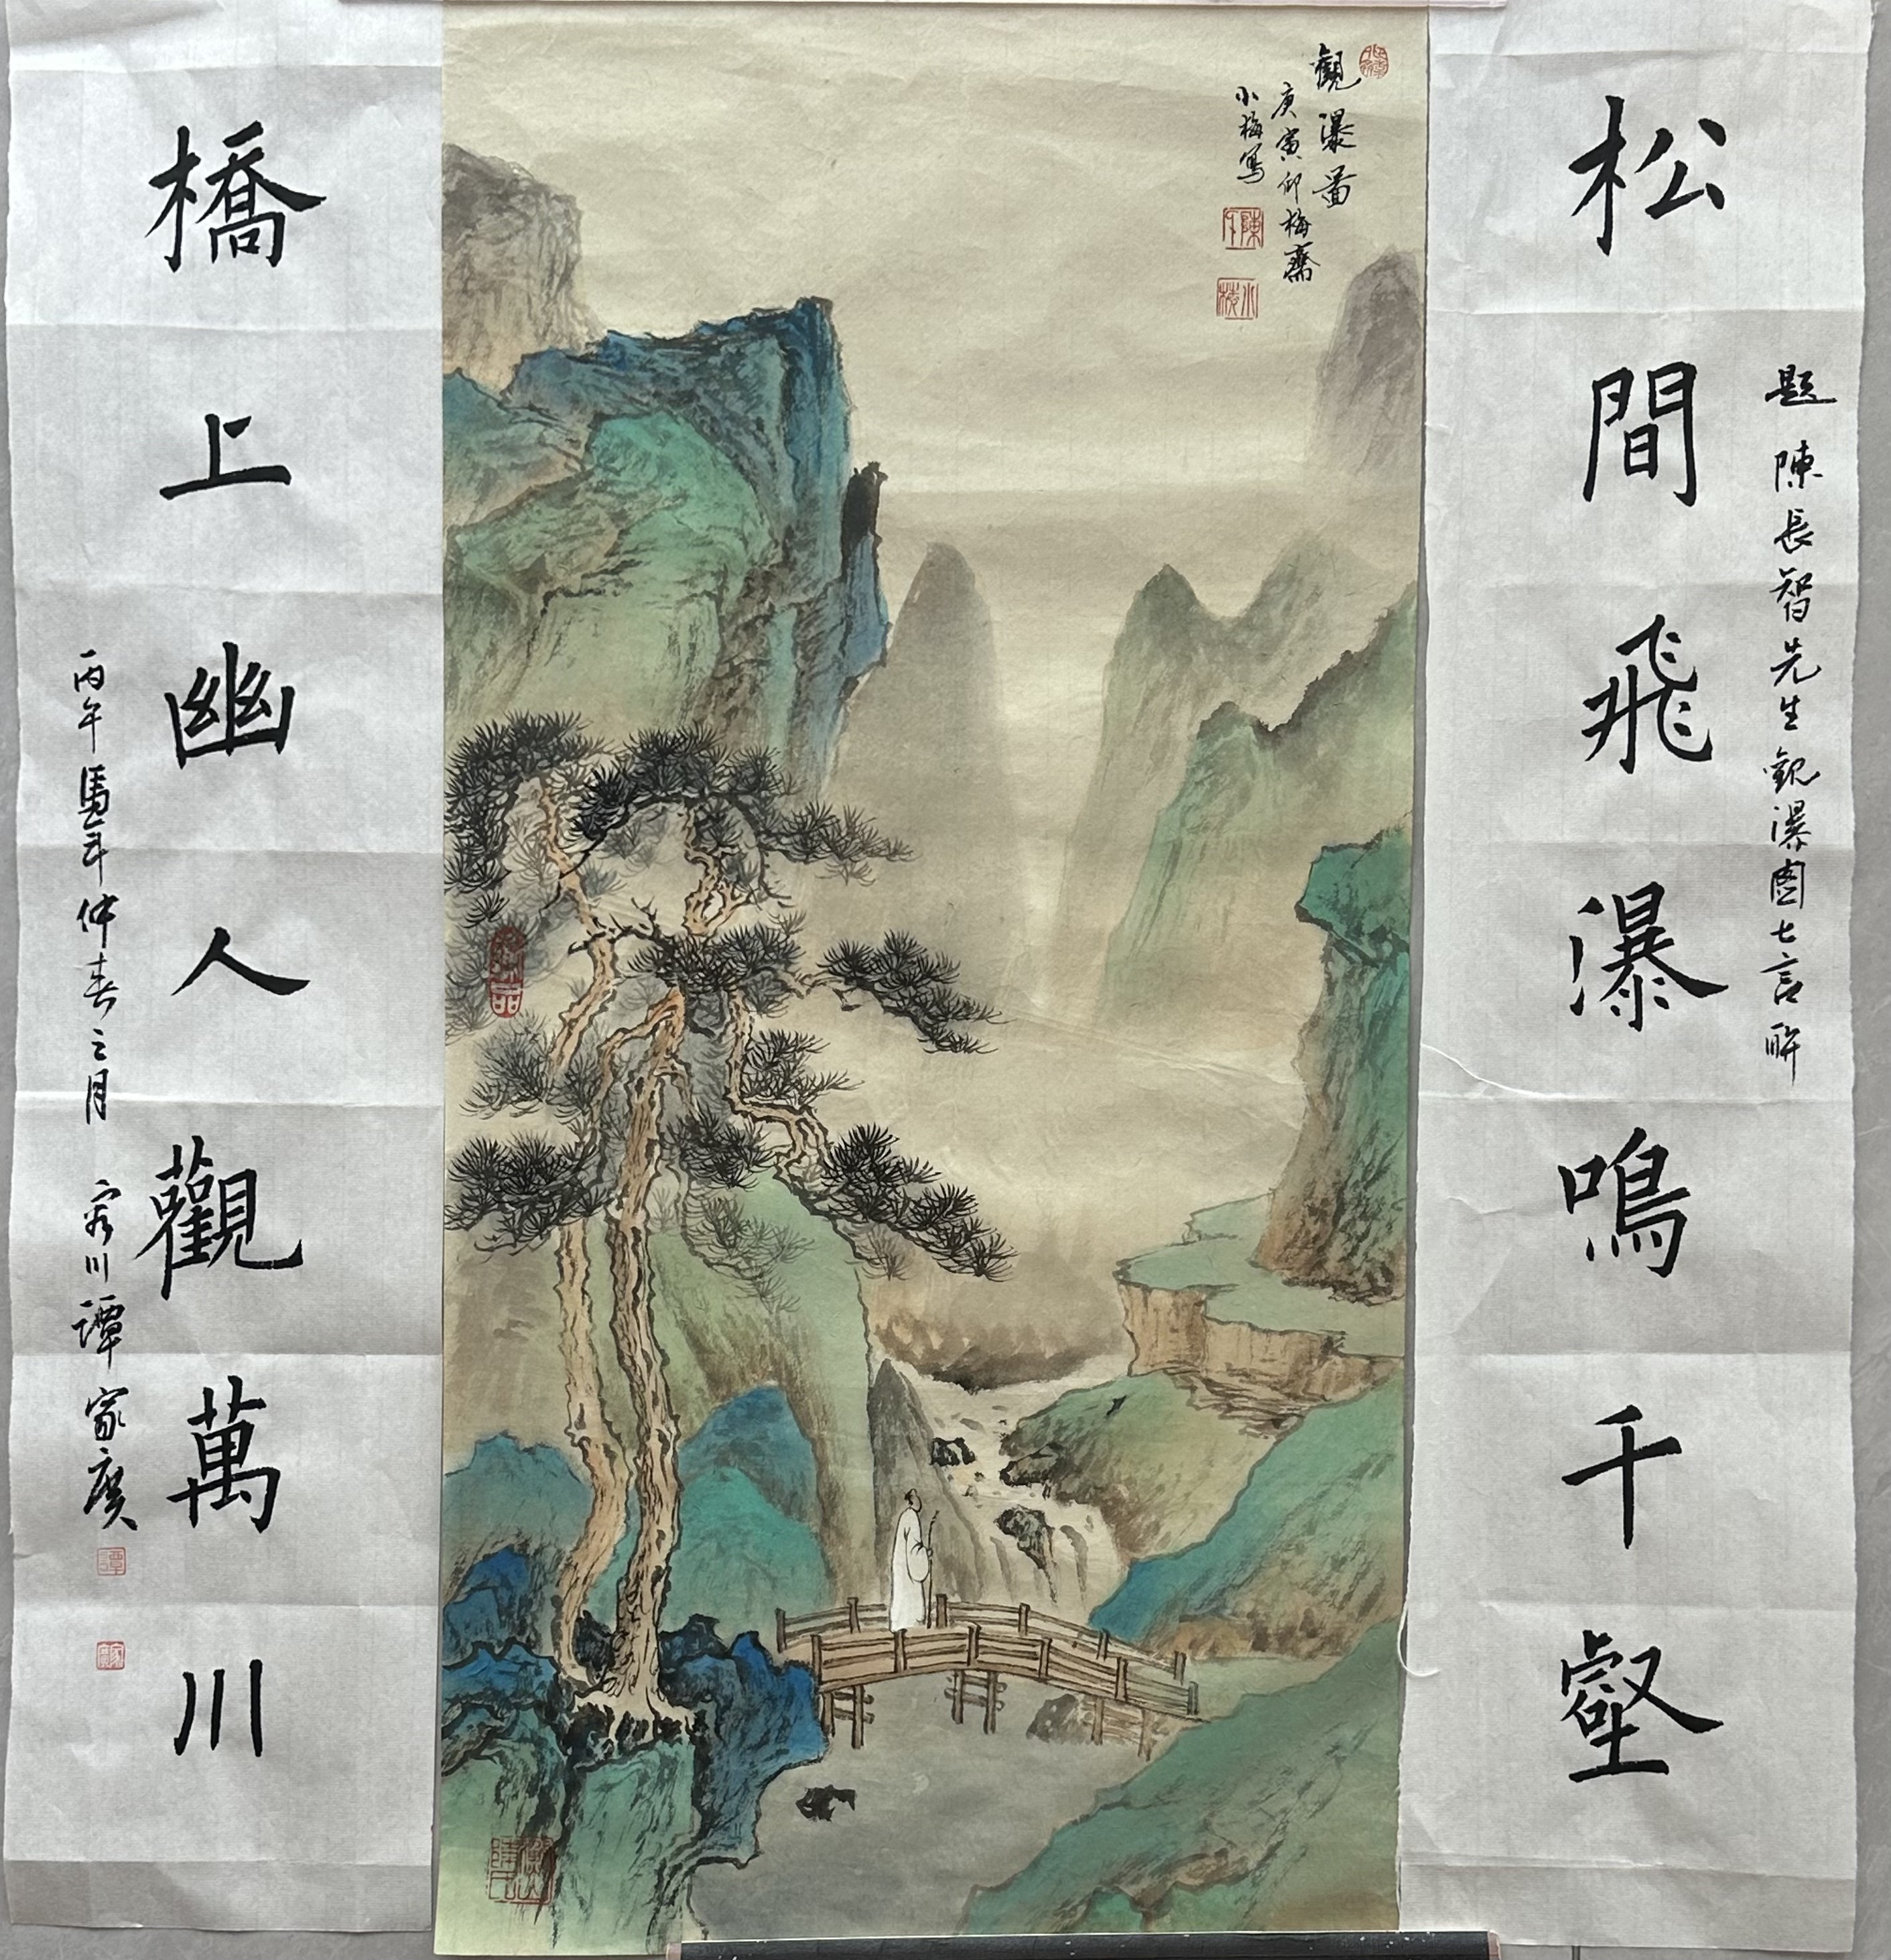 題陳長智先生觀瀑圖七言联
松間飛瀑鳴千壑
觀瀑圖
庚寅仰梅齋
小梅寫
橋上幽人觀萬川
丙午馬年仲春之月 容川譚家廣